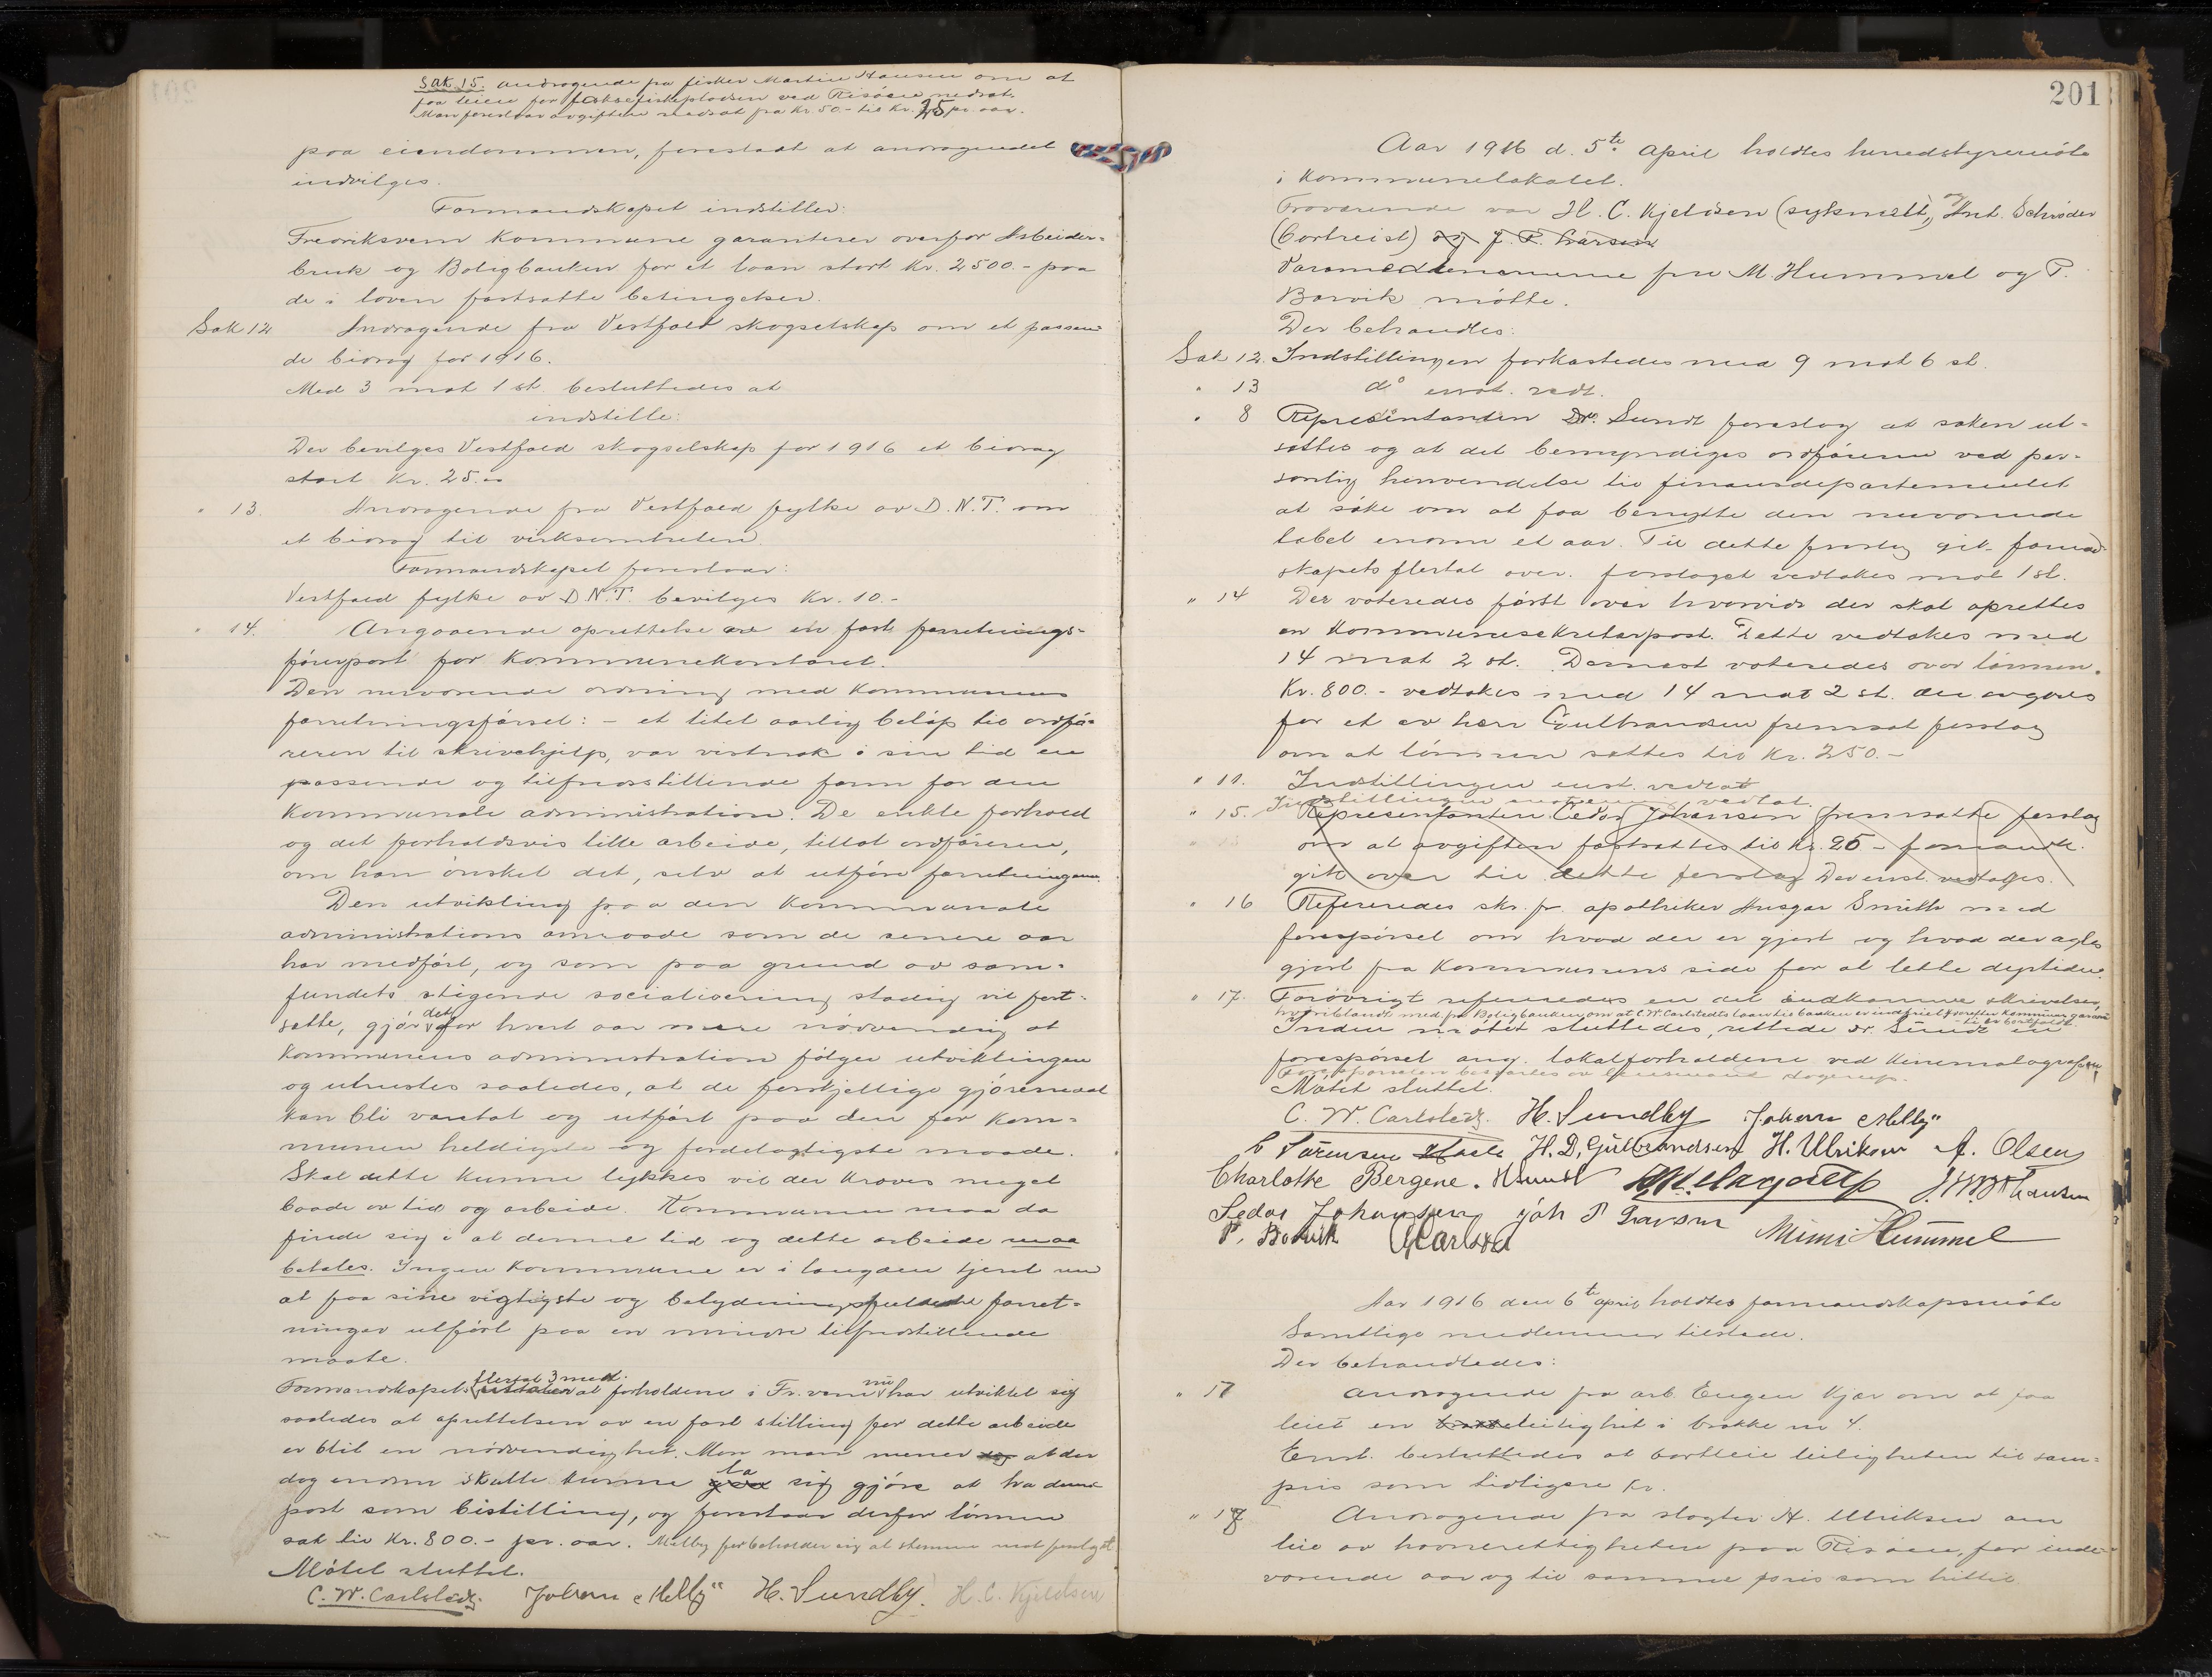 Sak 15. Andragende fra fisker Martin Hansen om at
faa leien for laksefiskepladsen ved Risöen nedsat.
Man foreslaar avgiften nedsat fra Kr. 50.- til Kr. 25 pr. aar.
paa eiendommen, forestaat at andragendet
indvilges.
Formandskapet indstiller:
Fredriksvern kommune garanterer overfor Arbeider-
bruk og Boligbanken for et laan stort Kr. 2500.- paa
de i loven fastsatte betingelser.
Sak 12 Andragende fra Vestfold skogselskap om et passen-
de bidrag for 1916.
Med 3 mot 1 st. besluttedes at
indstille:
Der bevilges Vestfold skogselskap for 1916 et bidrag
stort Kr. 25.-
" 13. Andragende fra Vestfold fylke av D.N.T. om
et bidrag til virksomheten.
Formandskapet foreslaar:
Vestfold fylke av D.N.T. bevilges Kr. 10.-
" 14. Angaaende oprettelse av en fast forretnings-
förerpost for kommunekontoret.
Den nuværende ordning med kommunens
forretningsförsel: - et litet aarlig belöp til ordfö-
reren til skrivehjelp, var vistnok i sin tid en
passende og tilfredsstillende form for den
kommunale administration. De enkle forhold
og det forholdsvis lille arbeide, tillot ordföreren,
om han önsket det, selv at utföre forretningene.
Den utvikling paa den kommunale
administrations omraade som de senere aar
har medfört, og som paa grund av sam-
fundets stigende socialisering stadig vil fort-
sætte, gjör det for hvert aar mere nödvendig at
kommunens administration fölger utviklingen
og utrustes saaledes, at de forskjellige gjöremaal
kan bli varetat og utfört paa den for kom-
munen heldigste og fordelagtigste maade.
Skal dette kunne lykkes vil der kræves meget
baade av tid og arbeide. Kommunen maa da
finde sig i at denne tid og dette arbeide maa
betales. Ingen kommune er i længden tjent med
at faa sine vigtigste og betydningsfuldeste forret-
ninger utfört paa en mindre tilfredsstillende
maate.
Formandskapets flertal 3 med. uttaler at forholdene i Fr.vern nu har utviklet sig
saaledes at oprettelsen av en fast stilling for dette arbeide
er blit en nödvendighet. Men man mener dog at der
dog endnu skulle kunne la sig gjöre at ha denne
post som bistilling, og foreslaar derfor lönnen
sat til Kr. 800.- pr. aar. Melby forbeholder sig at stemme mot forslaget
Mötet sluttet.
C. W. Carlstedt. Johan Melby H. Sundby. H. C. Kjeldsen
201
Aar 1916 d. 5te april holdtes herredstyremöte
i kommunelokalet.
Fraværende var H. C. Kjeldsen (sykmeldt), og Ant. Schröder
(bortreist) og J. P. Larsen
Varamedlemmerne fru M. Hummel og P.
Borvik mötte.
Der behandles:
Sak 12. Indstillingen forkastedes med 9 mot 6 st.
" 13 do enst. vedt.
" 8 Repræsentanten Dr. Sundt foreslog at saken ut-
sættes og at det bemyndiges ordföreren ved per-
sonlig henvendelse til finansdepartementet
at söke om at faa benytte den nuværende
tabel endnu et aar. Til dette forslag gik formand-
skapets flertal over. forslaget vedtokes mot 1 st.
" 14 Der voteredes först over hvorvidt der skal oprettes
en kommunesekretærpost. Dette vedtokes med
14 mot 2 st. Dernæst voteredes over lönnen.
Kr. 800.- vedtokes med 14 mot 2 st. der avgaves
for et av herr Gulbrandsen fremsat forslag
om at lönnen sættes til Kr. 250.-
" 11. Indstillingen enst. vedtat
Indstillingen enstemmig vedtat.
" 15. Repræsentanten Sedor Johansen fremsatte forslag
om at avgiften fastsættes til Kr. 25 - formandsk.
gik over til dette forslag Der enst. vedtages.
" 16 Refereredes skr. fr. apotheker Ansgar Smith med
forespörsel om hvad der er gjort og hvad der agtes
gjort fra kommunens side for at lette dyrtiden.
" 17. Forövrigt refereredes en del indkomne skrivelser,
hvoriblandt med. fra Boligbanken om at C. W. Carlstedts laan til banken er indfriet & hvorefter kommunens garanti
til er bortfaldt.
Inden mötet sluttedes, rettede dr. Sundt en
forespörsel ang. lokalforholdene ved kinematografen
Forespörselen besvartes av
Mötet sluttet.
C. W. Carlstedt. H. Sundby Johan Melby
C Sörensen H. D. Gulbrandsen H. Ulriksen A. Olsen
Charlotte Bergene. H Sundt
Sedor Johansen Joh P Larsen Mimi Hummel
P. Borvik
Aar 1916 den 6te april holdtes formandskapsmöte
Samtlige medlemmer tilstede.
Der behandledes:
" 17 Andragende fra arb. Eugen Kjær om at faa
leiet en leilighet i brakke no 4.
Enst. besluttedes at bortleie leiligheten til sam-
pris som tidligere kr.
" 18 Andragende fra slagter H. Ulriksen om
leie av havnerettigheten paa Risöen, for inde-
værende aar og til samme pris som hittil